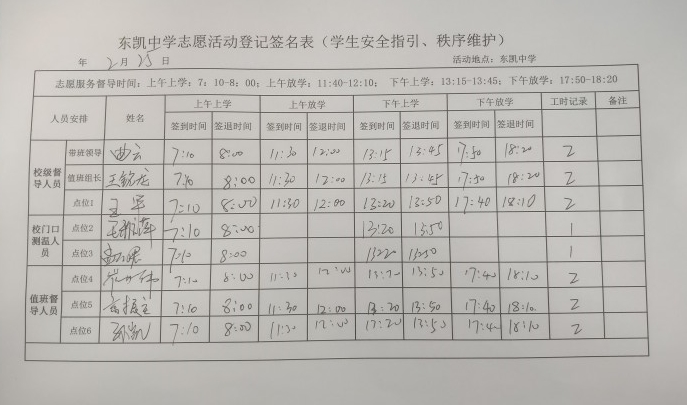 东凯中学志愿活动登记签名表（学生安全指引、秩序维护）
年 2月25日 活动地点：东凯中学
志愿服务督导时间：上午上学：7：10-8：00；上午放学：11:40-12:10； 下午上学：13:15-13:45；下午放学：17:50-18:20
人员安排 姓名 上午上学 上午放学 下午上学 下午放学 工时记录 备注
签到时间 签退时间 签到时间 签退时间 签到时间 签退时间 签到时间 签退时间
校级督导人员 带班领导 7:10 8:00 11:30 12:00 13:15 13:45 17:50 18:20 2
值班组长 7:10 8:00 11:30 12:00 13:15 13:45 17:50 18:20 2
点位1 7:10 8:00 11:30 12:00 13:20 13:50 17:40 18:10 2
校门口测温人员 点位2 7:10 8:00 13:20 13:50 1
点位3 7:10 8:00 1320 1350 1
值班督导人员 点位4 7:10 8:00 11:30 12:00 13:20 13:50 17:40 18:10 2
点位5 7:10 8:00 11:30 12:00 13:20 13:50 17:40 18:10 2
点位6 7:10 8:00 11:30 12:00 13:20 13:50 17:40 18:10 2